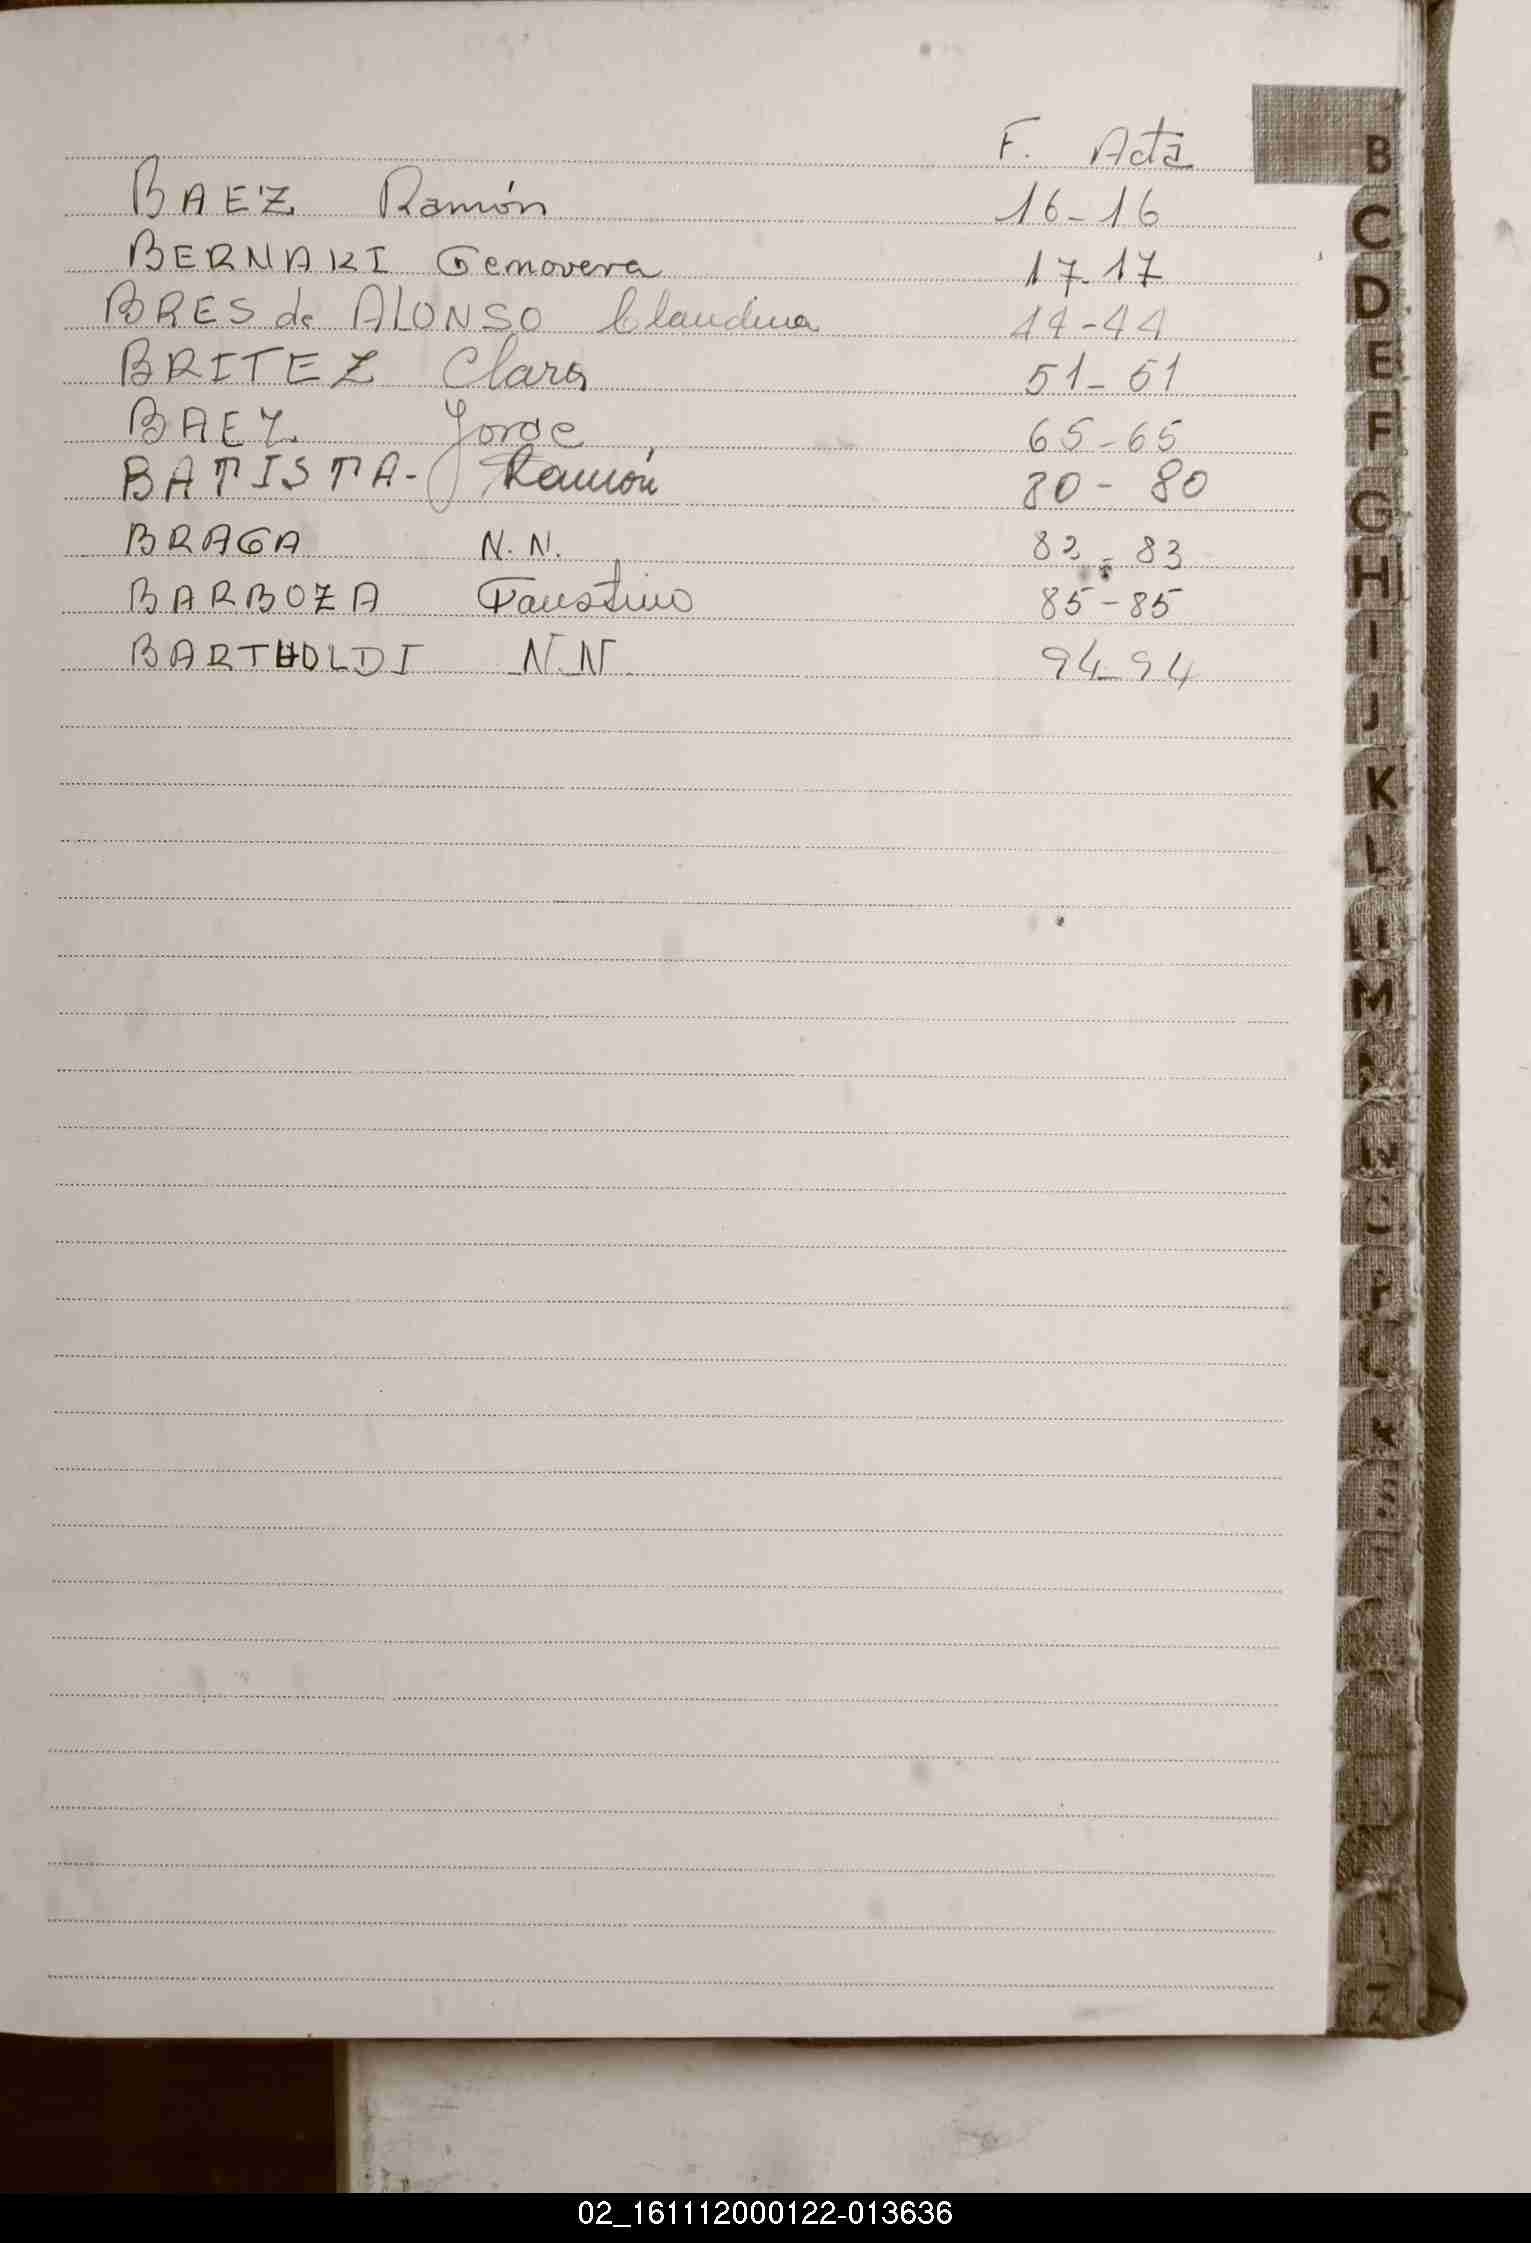 F. Acta
BAEZ Ramón 16-16
BERNAKI Genovera 17-17
BRES de ALONSO Claudina 44-44
BRITEZ Clara 51-51
BAEZ Jorge 65-65
BATISTA- Ramón 80-80
BRAGA N.N. 83-83
BARBOZA Faustino 85-85
BARTHOLDI N.N 94-94
B
C
D
E
F
G
H
I
J
K
L
M
Z
02_161112000122-013636